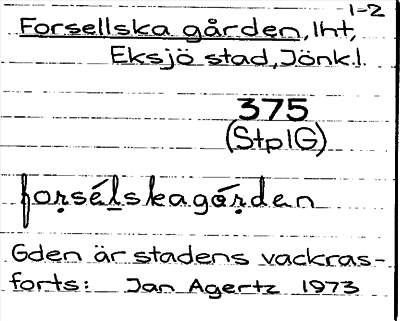 1-2
Forsellska gården, lht,
Eksjö stad, Jönk.l.
375
(StplG)
fo̩rṣél̲skagó̩r̩den
Gden är stadens vackras-
forts: Jan Agertz 1973